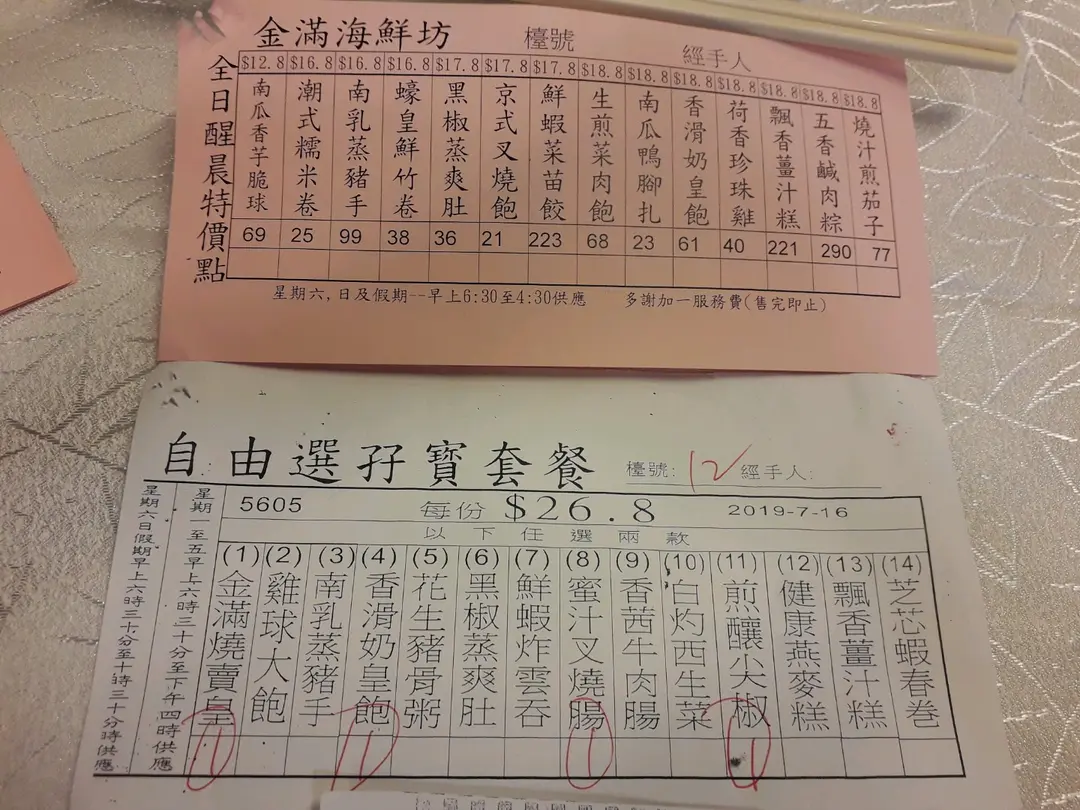 金滿海鮮坊 檯號 經手人
全日醒晨特價點
$12.8 $16.8 $16.8 $16.8 $17.8 $17.8 $17.8 $18.8 $18.8 $18.8 $18.8 $18.8 $18.8 $18.8
南瓜香芋脆球
潮式糯米卷
南乳蒸豬手
蠔皇鮮竹卷
黑椒蒸爽肚
京式叉燒飽
鮮蝦菜苗餃
生煎菜肉飽
南瓜鴨腳扎
香滑奶皇飽
荷香珍珠雞
飄香薑汁糕
五香鹹肉粽
燒汁煎茄子
69 25 99 38 36 21 223 68 23 61 40 221 290 77
星期六,日及假期--早上6:30至4:30供應 多謝加一服務費(售完即止)
自由選孖寶套餐 檯號: 12 經手人:
星期六日假期早上六時三十分至十時三十分供應
星期一至五早上六時三十分至下午四時供應
5605 每份 $26.8 2019-7-16
以下任選兩款
(1)金滿燒賣皇
(2)雞球大飽
(3)南乳蒸豬手
(4)香滑奶皇飽
(5)花生豬骨粥
(6)黑椒蒸爽肚
(7)鮮蝦炸雲吞
(8)蜜汁叉燒腸
(9)香茜牛肉腸
(10)白灼西生菜
(11)煎釀尖椒
(12)健康燕麥糕
(13)飄香薑汁糕
(14)芝芯蝦春卷
1 1 1 1